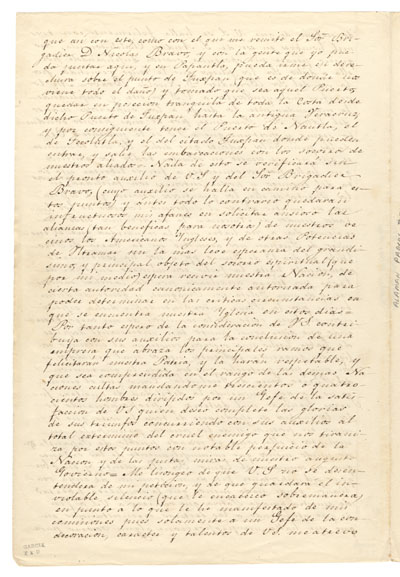 que an con este, como con el que me remita el Sor. Bri-
gadier D. Nicolas Bravo, y con la gente que yo pue-
da juntar aqui, y en Papantla, pueda irme en dere-
chura sobre el punto de Tuxpan (que es de donde nos
viene todo el daño) y tomado que sea aquel Puerto,
quedar en posecion tranquila de toda la Costa desde
dicho Puerto de Tuxpan hasta la antigua Veracruz,
y por consiguiente tener el Puerto de Nautla, el
de Tecolutla, y el del citado Tuxpan donde pueden
entrar, y salir las embarcaciones con los socorros de
nuestros aliados. Nada de esto se verificará sin
el pronto auxilio de V.S. y del Sor. Brigadier
Bravo, (cuyo auxilio se halla en camino para es-
tos puntos) y antes todo lo contrario quedarán
infructuosos mis afanes en solicitar ansioso las
alianzas (tan beneficas para nosotros) de nuestros ve-
cinos los Americanos Yngleses, y de otras Potencias
de Ultramar sin la mas leve esperanza del grandi-
simo, y principal objeto del socorro espiritual (que
por mi medio) espera recivir nuestra Nacion, de
cierta autoridad canonicamente autorizada para
poder determinar en las criticas circunstancias en
que se encuentra nuestra Yglesia en estos dias =
Por tanto espero de la concideracion de V.S. contri-
buirá con sus auxilios para la conclucion de una
empresa que abraza los principales ramos que
felicitarán nuestra Patria, y la harán respetable, y
que sea comprendida en el rango de las demas Na-
ciones cultas mandandome trescientos o quatro-
cientos hombres dirijidos por un Gefe de la satis-
faccion de V.S. quien deseo complete las glorias
de sus triunfos concurriendo con sus auxilios al
total exterminio del cruel enemigo que nos tirani-
za por estos puntos con notable perjuicio de la
Nacion y de las justas miras de nuestro augusto
Govierno = Me lisongeo de que V.S. no se desen-
tenderá de mi peticion, y de que guardará el in-
violable silencio (que le encarezco sobremanera)
en punto a lo que le he manifestado de mis
comiciones pues solamente a un Gefe de la con-
decoracion, caracter y talentos de V.S. me atrevo
GARCIA